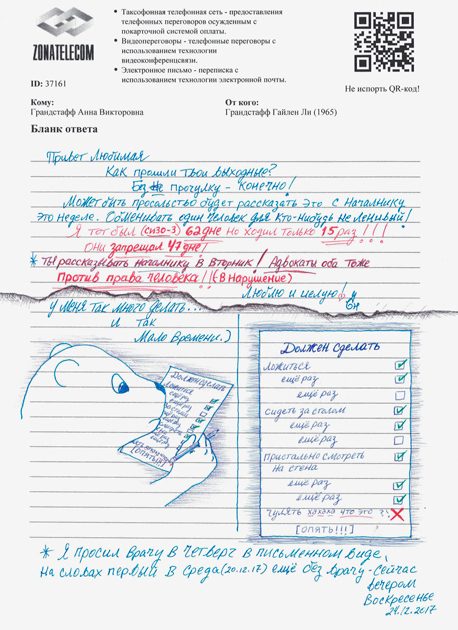 ZONATELECOM
• Таксофонная телефонная сеть - предоставления
телефонных переговоров осужденным с
покарточной системой оплаты.
• Видеопереговоры - телефонные переговоры с
использованием технологии
видеоконференсвязи.
• Электронное письмо - переписка с
использованием технологии электронной почты.
Не испорть QR-код!
ID: 37161
Кому:
Грандстафф Анна Викторовна
От кого:
Грандстафф Гайлен Ли (1965)
Бланк ответа
Привет Любимая
Как прошли твои выходные?
Без прогулку - конечно!
Может быть просольство будет рассказать это с началнику
это неделе. Сомневивать один человек для кто-нибудь не ленивый!
Я тот был (сизо-3) 62 дне но ходил только 15 раз!!!
Они запрещал 47 дне!
* Ты рассказывать началнику в Вторник! Адвокаты оба тоже
Против права человека!! (В Нарушение)
Люблю и целую!
у меня так много делать...
и так
Мало Времени.)
Должен сделать
ложиться
ещё раз
ещё раз
сидеть за столом
ещё раз
ещё раз
пристально смотреть
на стена
ещё раз
ещё раз
гулять хахаха что это ?!
[ОПЯТЬ!!!]
* Я просил врачу в четверг в письменном виде,
на словах первый в среда (20.12.17) ещё без врачу - сейчас
вечером
Воскресенье
24.12.2017